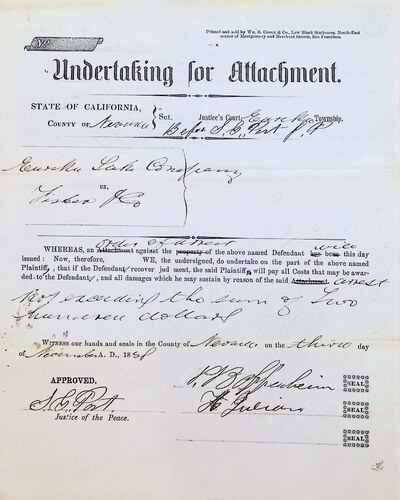 No.
Printed and sold by Wm. B. Cooke & Co., Law Blank Stationers, North-East
corner of Montgomery and Merchant Streets, San Francisco.
Undertaking for Attachment.
STATE OF CALIFORNIA,
COUNTY OF Nevada } Sct. Justice's Court, Eureka Township.
Before S. E. Port J. P.
Eureka Lake Company
vs.
Fisher & Co
order of arrest
WHEREAS, an Attachment against the property of the above named Defendant has been this day will
issued: Now, therefore, WE, the undersigned, do undertake on the part of the above named
Plaintiff, that if the Defendant recover judgment, the said Plaintiff will pay all Costs that may be awar-
ded to the Defendant, and all damages which he may sustain by reason of the said Attachment arrest
not exceeding the sum of two
hundred dollars
WITNESS our hands and seals in the County of Nevada on the third day
of November A. D., 185
APPROVED,
S. E. Port.
Justice of the Peace.
SEAL
SEAL
SEAL